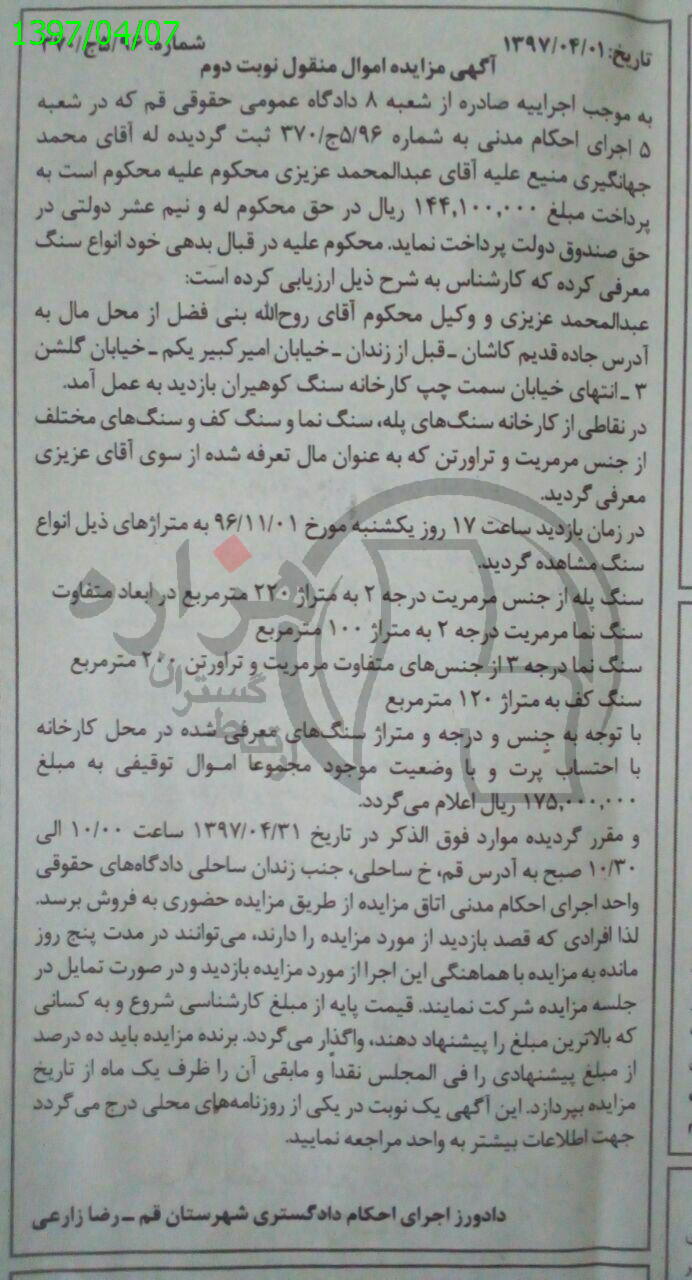 1397/04/07
تاریخ: ۱۳۹۷/۰۴/۰۱ شماره: ۵/۹۶ج/۳۷۰
آگهی مزایده اموال منقول نوبت دوم
به موجب اجراییه صادره از شعبه ۸ دادگاه عمومی حقوقی قم که در شعبه
۵ اجرای احکام مدنی به شماره ۵/۹۶ج/۳۷۰ ثبت گردیده له آقای محمد
جهانگیری منیع علیه آقای عبدالمحمد عزیزی محکوم علیه محکوم است به
پرداخت مبلغ ۱۴۴,۱۰۰,۰۰۰ ریال در حق محکوم له و نیم عشر دولتی در
حق صندوق دولت پرداخت نماید. محکوم علیه در قبال بدهی خود انواع سنگ
معرفی کرده که کارشناس به شرح ذیل ارزیابی کرده است:
عبدالمحمد عزیزی و وکیل محکوم آقای روح‌الله بنی فضل از محل مال به
آدرس جاده قدیم کاشان ـ قبل از زندان ـ خیابان امیرکبیر یکم ـ خیابان گلشن
۳ ـ انتهای خیابان سمت چپ کارخانه سنگ کوهیران بازدید به عمل آمد.
در نقاطی از کارخانه سنگ‌های پله، سنگ نما و سنگ کف و سنگ‌های مختلف
از جنس مرمریت و تراورتن که به عنوان مال تعرفه شده از سوی آقای عزیزی
معرفی گردید.
در زمان بازدید ساعت ۱۷ روز یکشنبه مورخ ۹۶/۱۱/۰۱ به متراژهای ذیل انواع
سنگ مشاهده گردید.
سنگ پله از جنس مرمریت درجه ۲ به متراژ ۲۲۰ مترمربع در ابعاد متفاوت
سنگ نما مرمریت درجه ۲ به متراژ ۱۰۰ مترمربع
سنگ نما درجه ۳ از جنس‌های متفاوت مرمریت و تراورتن ۲۰۰ مترمربع
سنگ کف به متراژ ۱۲۰ مترمربع
با توجه به جنس و درجه و متراژ سنگ‌های معرفی شده در محل کارخانه
با احتساب پرت و با وضعیت موجود مجموعا اموال توقیفی به مبلغ
۱۷۵,۰۰۰,۰۰۰ ریال اعلام می‌گردد.
و مقرر گردیده موارد فوق الذکر در تاریخ ۱۳۹۷/۰۴/۳۱ ساعت ۱۰/۰۰ الی
۱۰/۳۰ صبح به آدرس قم، خ ساحلی، جنب زندان ساحلی دادگاه‌های حقوقی
واحد اجرای احکام مدنی اتاق مزایده از طریق مزایده حضوری به فروش برسد.
لذا افرادی که قصد بازدید از مورد مزایده را دارند، می‌توانند در مدت پنج روز
مانده به مزایده با هماهنگی این اجرا از مورد مزایده بازدید و در صورت تمایل در
جلسه مزایده شرکت نمایند. قیمت پایه از مبلغ کارشناسی شروع و به کسانی
که بالاترین مبلغ را پیشنهاد دهند، واگذار می‌گردد. برنده مزایده باید ده درصد
از مبلغ پیشنهادی را فی المجلس نقداً و مابقی آن را ظرف یک ماه از تاریخ
مزایده بپردازد. این آگهی یک نوبت در یکی از روزنامه‌های محلی درج می‌گردد
جهت اطلاعات بیشتر به واحد مراجعه نمایید.
دادورز اجرای احکام دادگستری شهرستان قم ـ رضا زارعی
هزاره
گستران
ارتباط